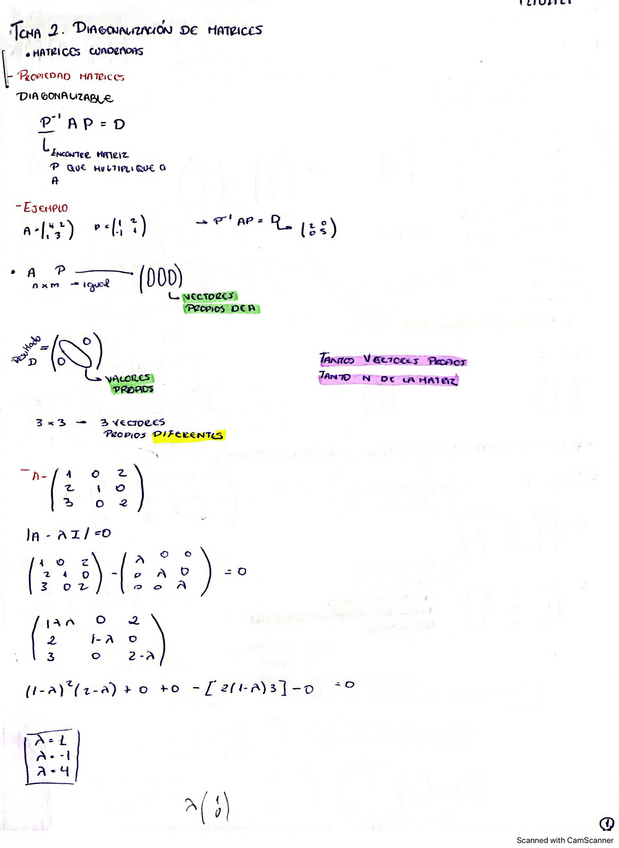 TEMA 2. DIAGONALIZACIÓN DE MATRICES
• MATRICES CUADRADAS
- PROPIEDAD MATRICES
DIAGONALIZABLE
P⁻¹ A P = D
ENCONTRER MATRIZ
P QUE MULTIPLIQUE A
A
- EJEMPLO
A = (4 2 / 1 3) P = (1 2 / -1 1) → P⁻¹ AP = D (2 0 / 0 5)
• A P (000)
n x m → igual
VECTORES
PROPIOS DE A
Resultado D = (0 0)
VALORES
PROPIOS
TANTOS VECTORES PROPIOS
TANTO N DE LA MATRIZ
3 x 3 → 3 VECTORES
PROPIOS DIFERENTES
- A = (1 0 2 / 2 1 0 / 3 0 2)
|A - λI| = 0
(1 0 2 / 2 1 0 / 3 0 2) - (λ 0 0 / 0 λ 0 / 0 0 λ) = 0
(1-λ 0 2 / 2 1-λ 0 / 3 0 2-λ)
(1-λ)²(2-λ) + 0 + 0 - [2(1-λ)3] - 0 = 0
λ = 1
λ = -1
λ = 4
λ (1 / 0)
1
Scanned with CamScanner